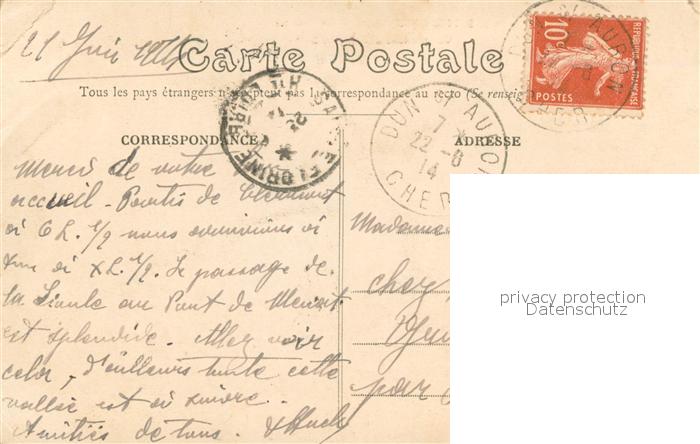 21 Juin 1914
Carte Postale
Tous les pays étrangers n'acceptent pas la correspondance au recto (Se renseig
CORRESPONDANCE
ADRESSE
REPUBLIQUE FRANÇAISE
10c
POSTES
DUN S' AURON
7
22 - 6
14
CHER
Merci de votre
accueil. Partis de Clermont
à 6 h. 1/2 nous arrivions à
à XL. 1/2. Le passage de
la Sioule au Pont de Menat
est splendide. Allez voir
cela, d'ailleurs toute cette
vallée est à suivre.
Amitiés de tous.
Madame
chez
par
privacy protection
Datenschutz